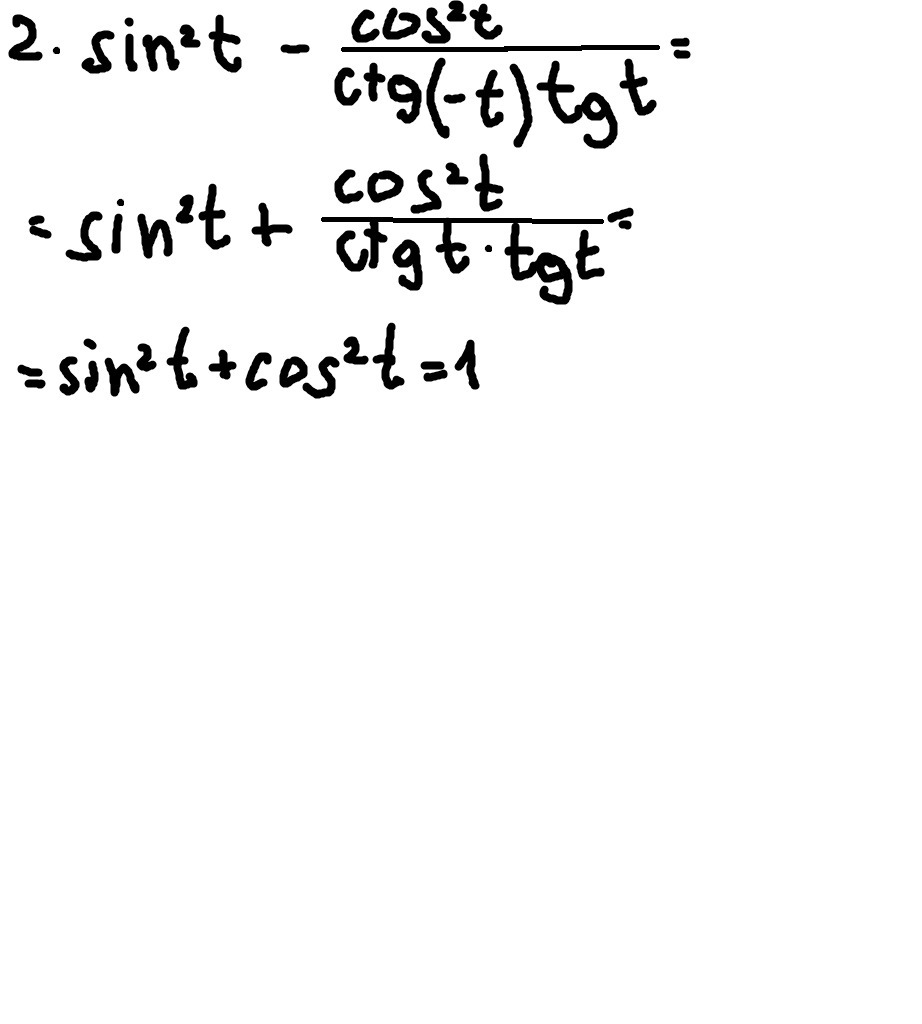 2. sin²t - cos²t / ctg(-t) tg t =
= sin²t + cos²t / ctg t · tg t =
= sin²t + cos²t = 1